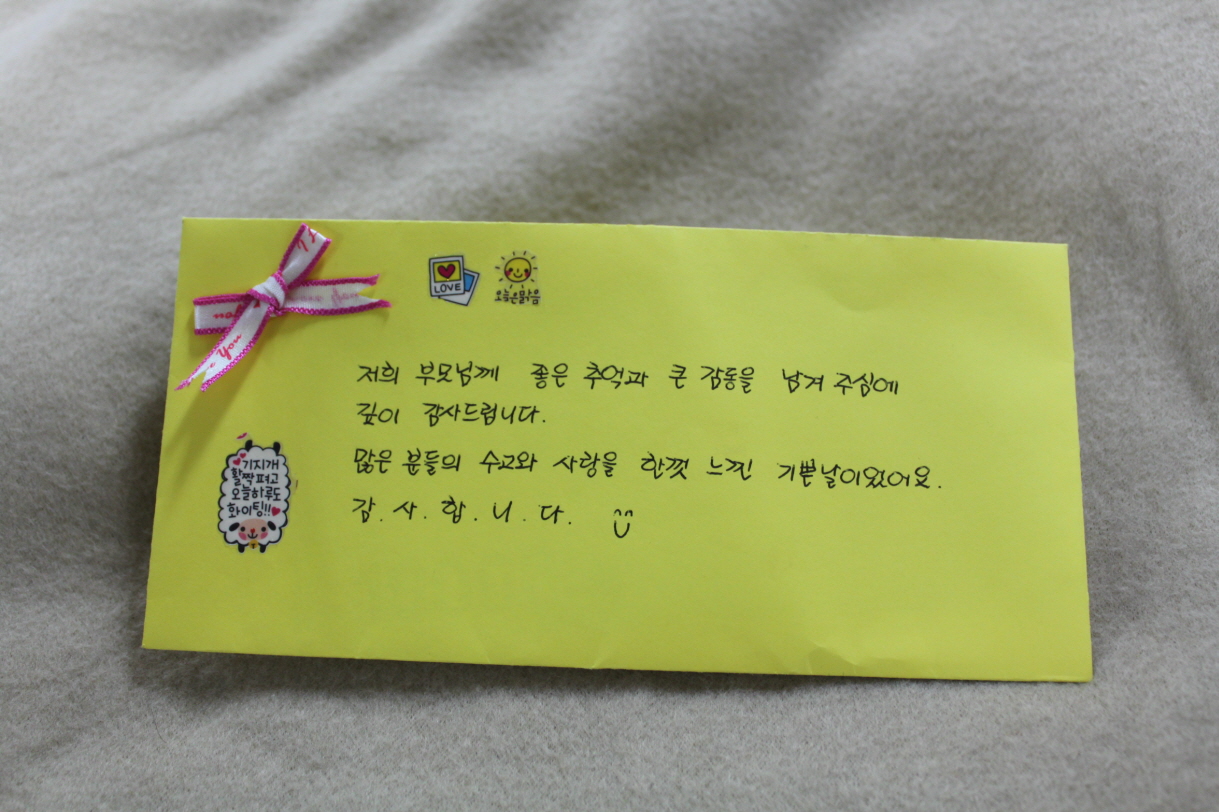 LOVE
오늘은맑음
저희 부모님께 좋은 추억과 큰 감동을 남겨 주심에
깊이 감사드립니다.
많은 분들의 수고와 사랑을 한껏 느낀 기쁜날이었어요.
감.사.합.니.다.
기지개
활짝 펴고
오늘하루도
화이팅!!
you